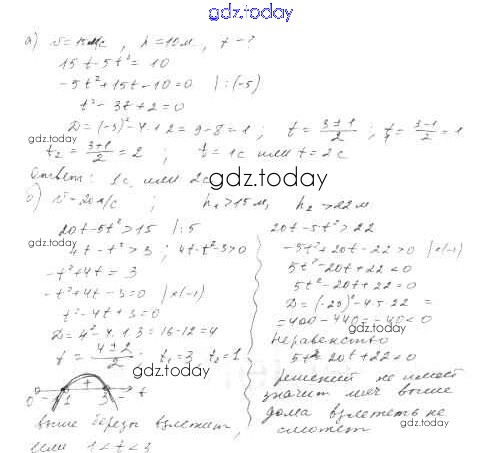 gdz.today
а) v=15м/с, h=10м, t-?
15t-5t²=10
-5t²+15t-10=0 |:(-5)
t²-3t+2=0
gdz.today
D=(-3)²-4·1·2=9-8=1; t=(3±1)/2; t₁=(3-1)/2=1
t₂=(3+1)/2=2; t=1с или t=2с
gdz.today
Ответ: 1с или 2с
gdz.today
б) v=20м/с; h₁>15м, h₂>22м
20t-5t²>15 |:5
4t-t²>3; 4t-t²-3>0
-t²+4t=3
-t²+4t-3=0 |×(-1)
t²-4t+3=0
D=4²-4·1·3=16-12=4
t=(4±2)/2; t₁=3, t₂=1
gdz.today
0 - 1 + 3 - t
выше березы взлетит,
если 1<t<3
20t-5t²>22
-5t²+20t-22>0 |×(-1)
5t²-20t+22<0
5t²-20t+22=0
D=(-20)²-4·5·22=
=400-440=-40<0
gdz.today
Неравенство
5t²-20t+22<0
решений не имеет
значит мяч выше
дома взлететь не
сможет
gdz.today